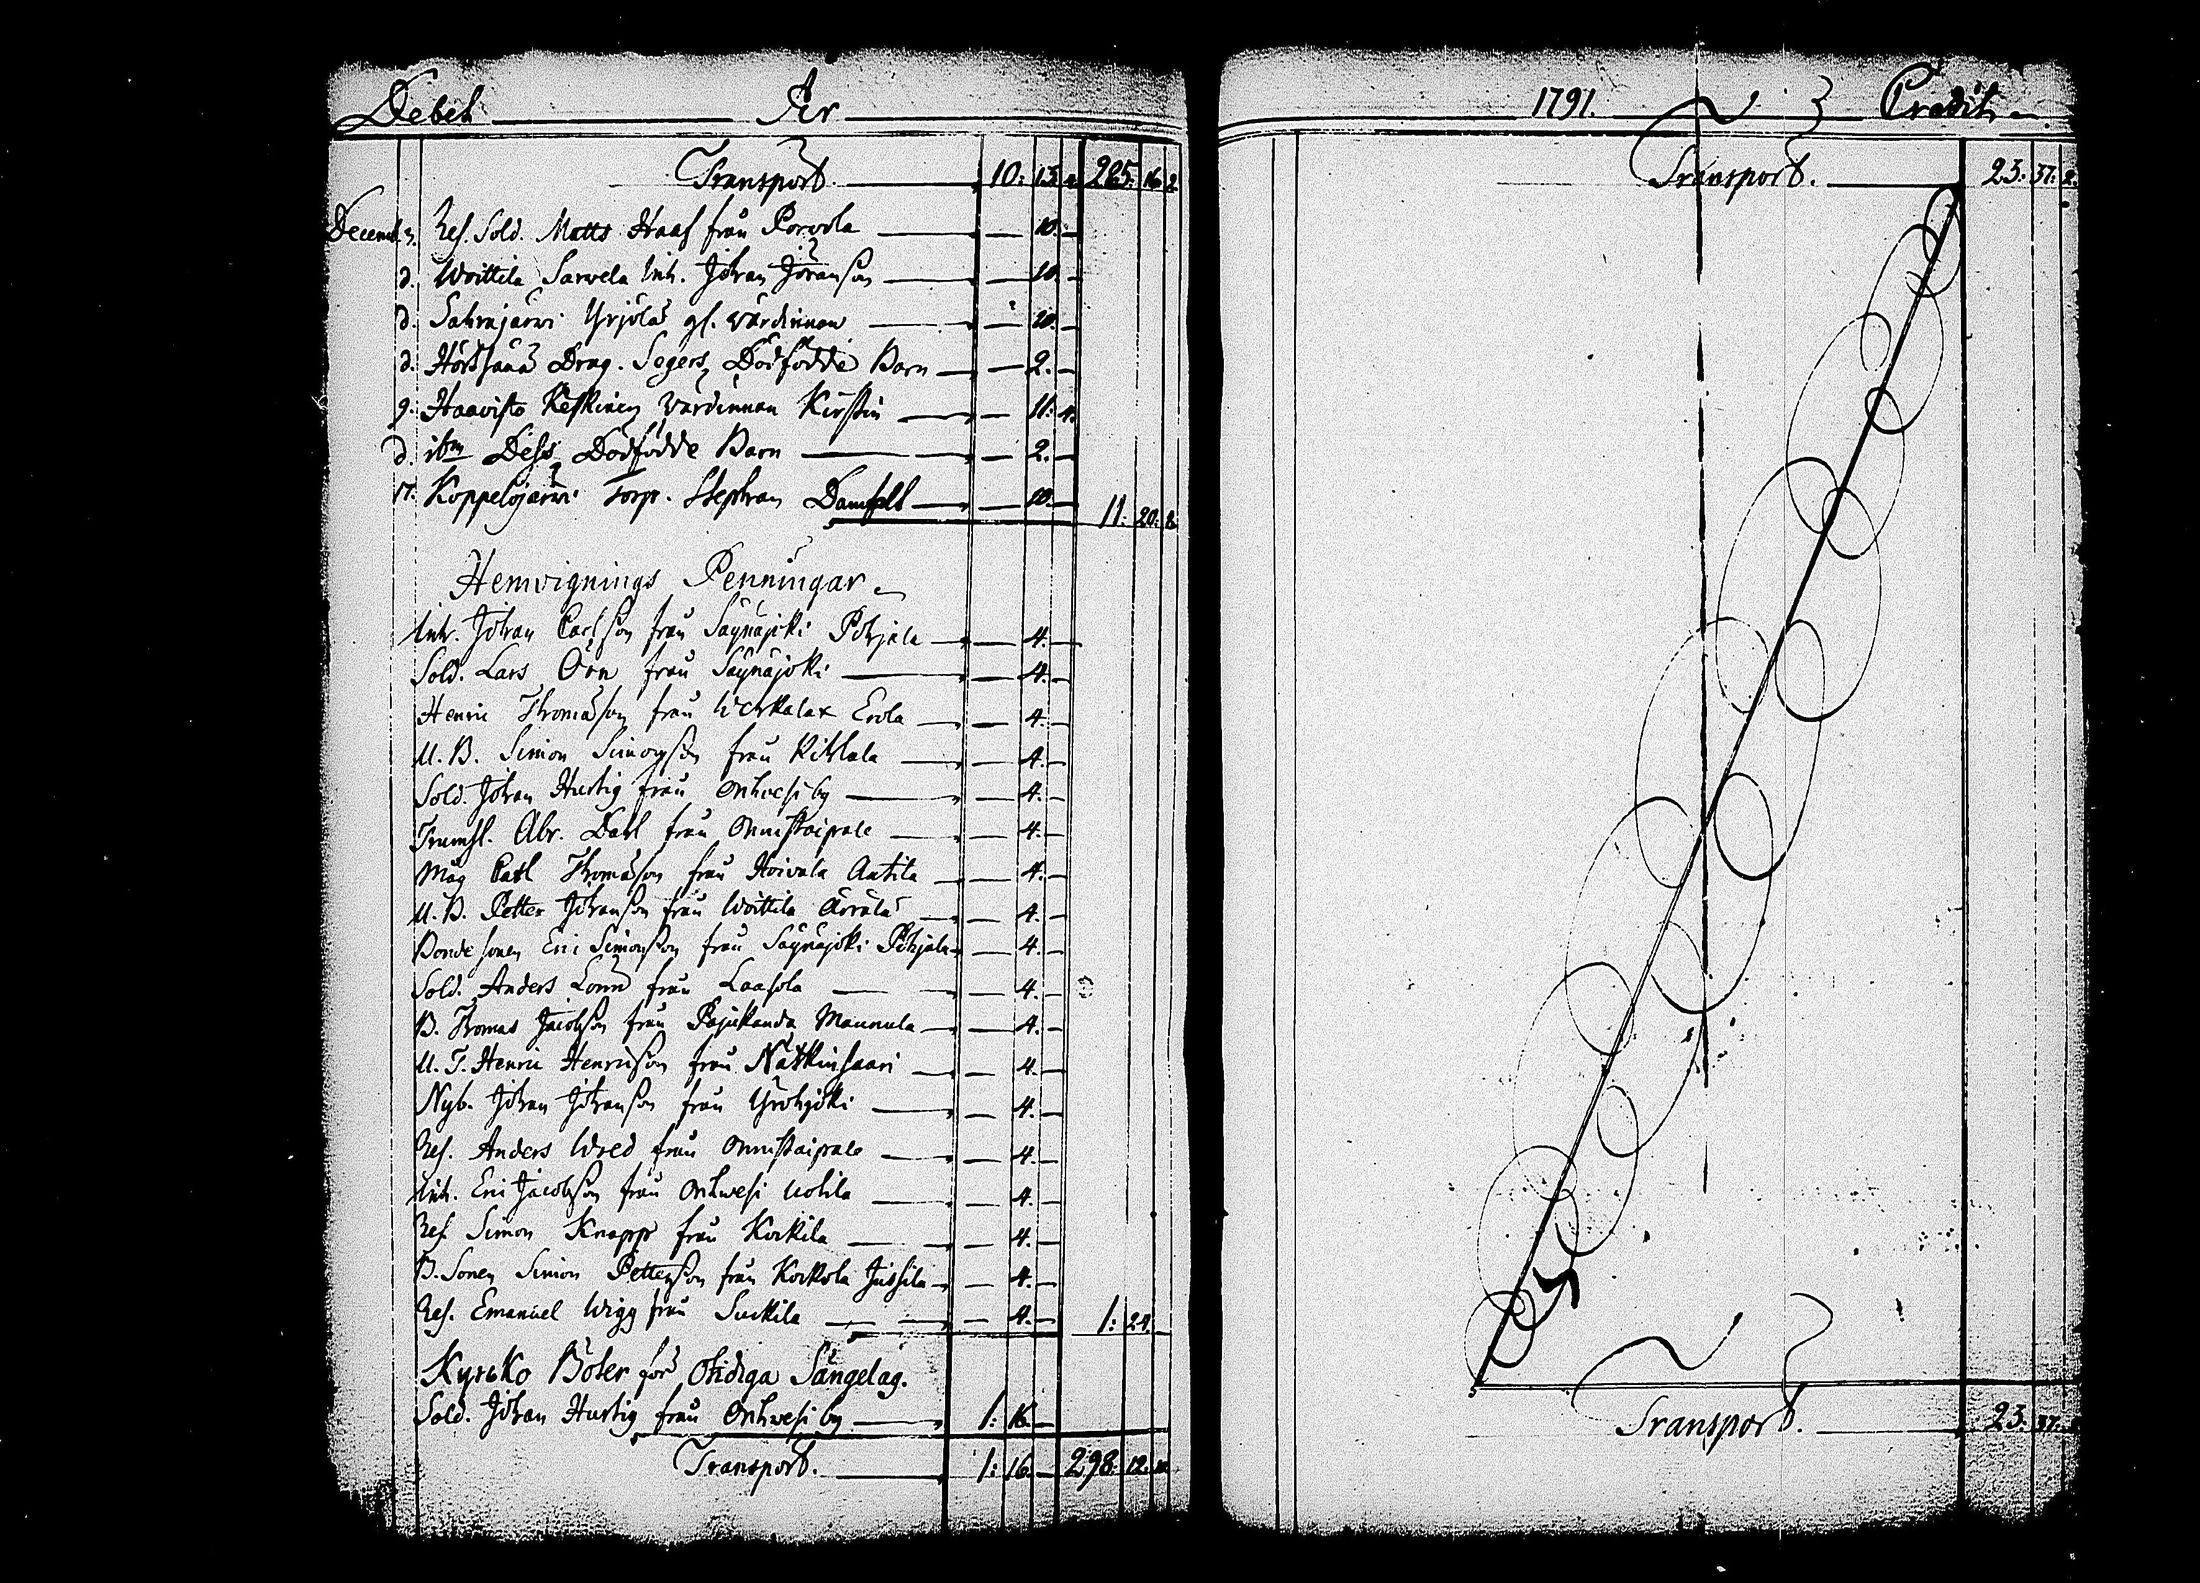 Debet Per
Transport. 10: 13. 2. 285: 16. 2.
Decemb. 3. Ref. Sold. Matts Haaf från Porvola — 10. —
d. Woittila Sarvela Inh. Johan Johansson — 10. —
d. Sahrajärvi Yrjölä gl. värdinnan — 10. —
d. Drag. Segers Dödfödde Barn — 2. —
9. Haavisto Keskinen värdinnan Kirstin — 11. 4.
d. ibm Dess Dödfödde Barn — 2. —
17. Koppelojärvi Torp. Stephan — 10. — 11: 20. 2.
Hemvignings Penningar
Inh. Johan Carlson från Säynäjoki Pohjala — 4. —
Sold. Lars Örn från Säynäjoki — 4. —
Henric Thomasson från Werkalax Erola — 4. —
U. B. Simon Simonsson från — 4. —
Sold. Johan Hurtig från Onkvesi by — 4. —
Trumsl. Abr. Dahl från Onnistaipale — 4. —
Måg Carl Thomasson från Hoivala Antila — 4. —
U. B. Petter Johansson från Woittila Äärälä — 4. —
Bonde sonen Eric Simonsson från Säynäjoki Pohjala — 4. —
Sold. Anders Lönn från Laasola — 4. —
B. Thomas Jacobsson från Pajukanda Maunula — 4. —
U. T. Henric Henricsson från Nätkinsaari — 4. —
Nyb. Johan Johansson från Yröhjoki — 4. —
Ref. Anders Wred från Onnistaipale — 4. —
Inh. Eric Jacobsson från Onkwesi Uotila — 4. —
Ref. Simon Knapp från Korkila — 4. —
B. Sonen Simon Pettersson från Korkola Jussila — 4. —
Ref. Emanuel Wigg från Suckila — 4. — 1: 24. —
Kyrcko Böter för Otidiga Sängelag.
Sold. Johan Hurtig från Onkvesi by 1: 16. —
Transport. 1: 16. — 298: 12.
1791. Credit
Transport. 23: 37: 2.
Transport. 23: 37: